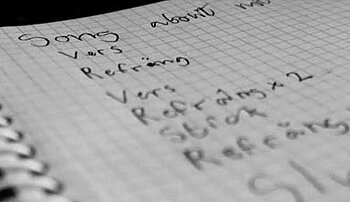 Song about
Vers
Refräng
Vers
Refräng x 2
Stick
Refräng